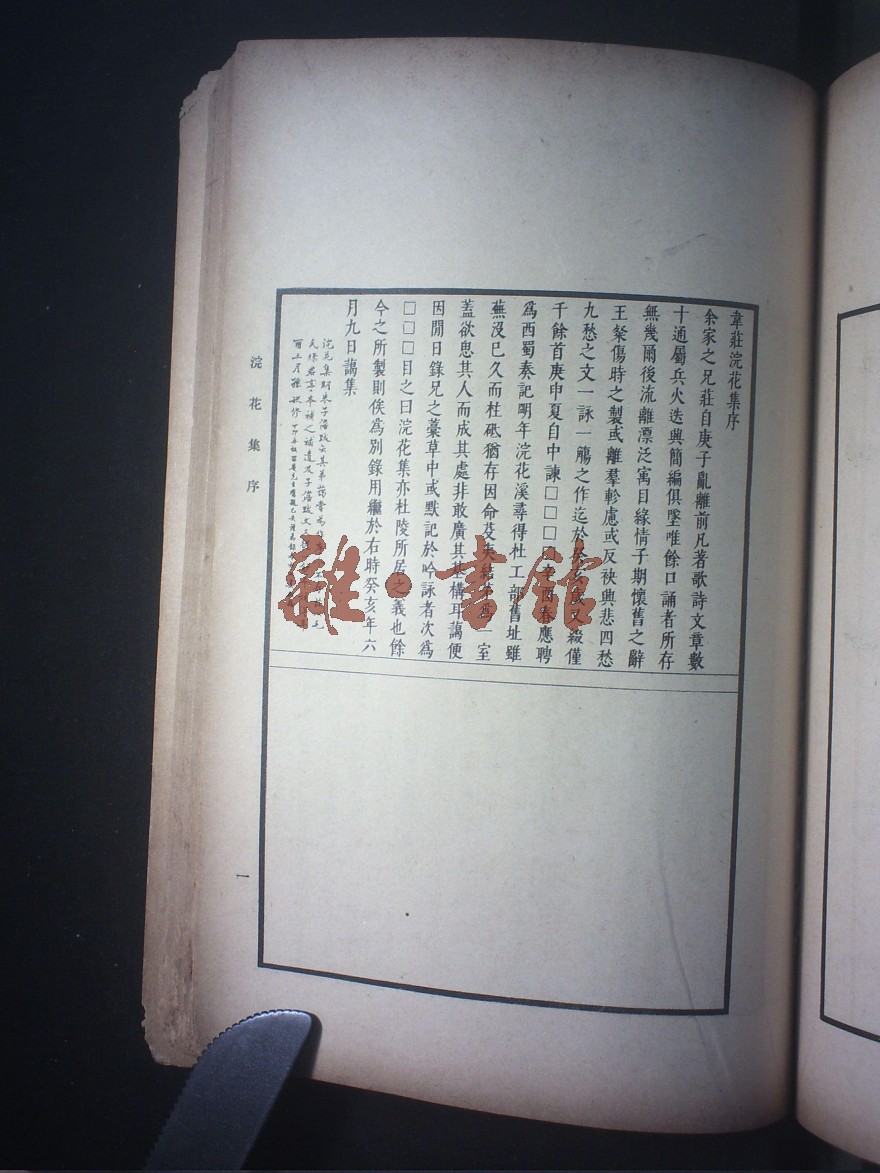 韋莊浣花集序
余家之兄莊自庚子亂離前凡著歌詩文章數
十通屬兵火迭興簡編俱墜唯餘口誦者所存
無幾爾後流離漂泛寓目緣情子期懷舊之辭
王粲傷時之製或離羣軫慮或反袂興悲四愁
九愁之文一詠一觴之作迄於癸亥歲又綴僅
千餘首庚申夏自中諫□□□□辛酉春應聘
爲西蜀奏記明年浣花溪尋得杜工部舊址雖
蕪沒已久而杜砥猶存因命芟夷結茅爲一室
蓋欲思其人而成其處非敢廣其基構耳藹便
因閒日錄兄之藁草中或默記於吟詠者次爲
□□□目之曰浣花集亦杜陵所居之義也餘
今之所製則俟爲別錄用繼於右時癸亥年六
月九日藹集
浣花集
浣花集序
一
雜·書館